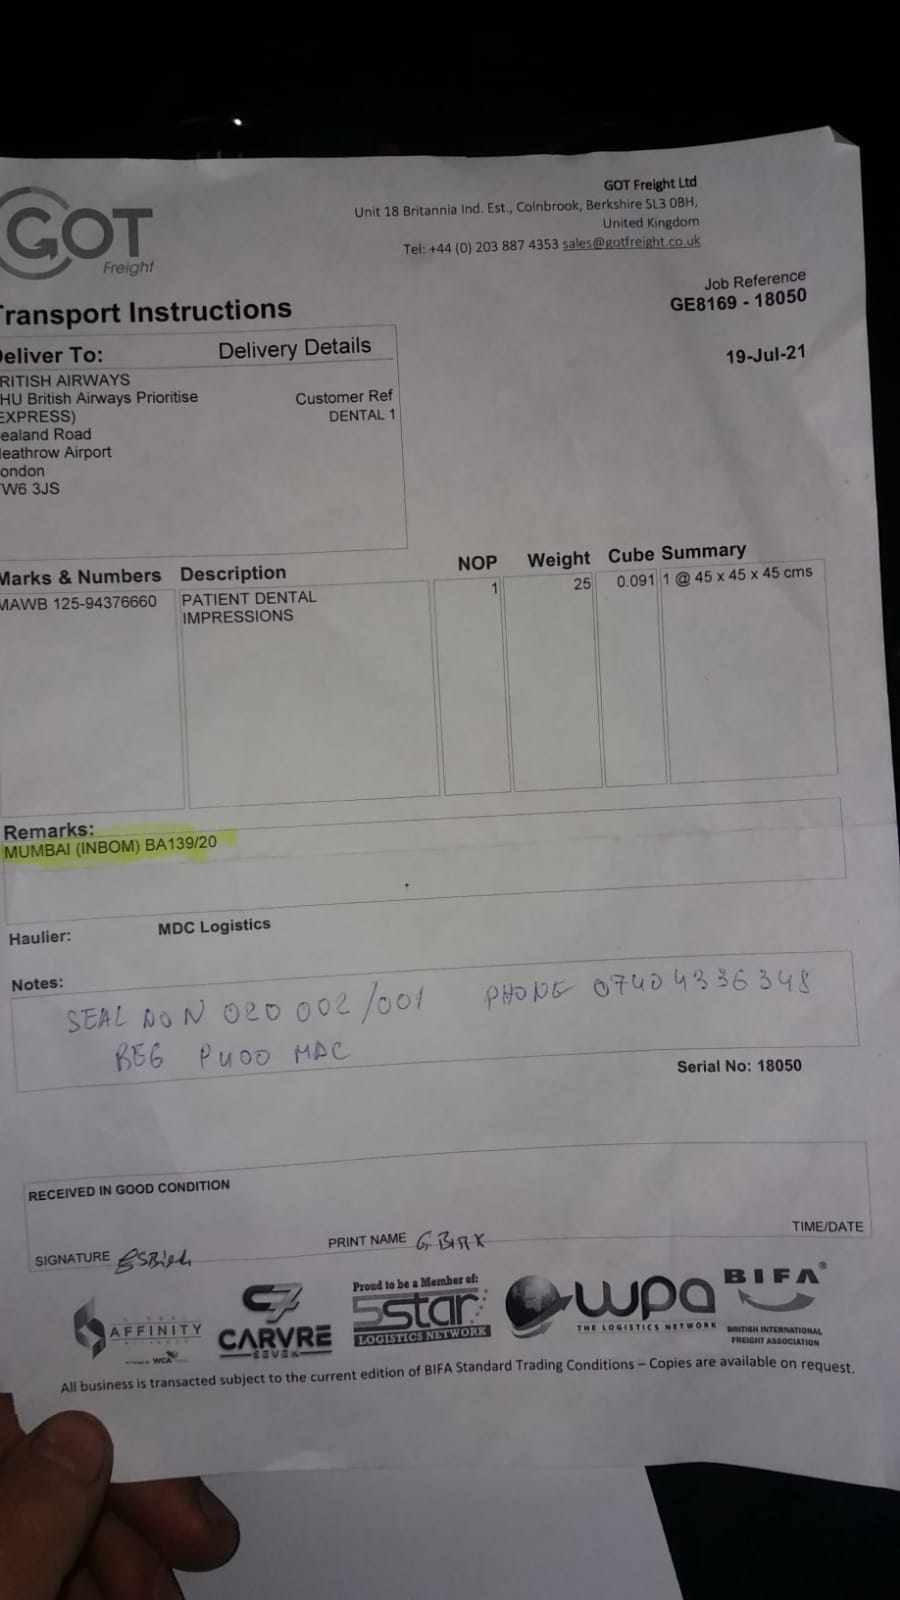 GOT
Freight
GOT Freight Ltd
Unit 18 Britannia Ind. Est., Colnbrook, Berkshire SL3 0BH,
United Kingdom
Tel: +44 (0) 203 887 4353 sales@gotfreight.co.uk
Job Reference
GE8169 - 18050
19-Jul-21
Transport Instructions
Deliver To: Delivery Details
RITISH AIRWAYS
HU British Airways Prioritise
EXPRESS)
ealand Road
eathrow Airport
ondon
W6 3JS
Customer Ref
DENTAL 1
Marks & Numbers Description NOP Weight Cube Summary
MAWB 125-94376660 PATIENT DENTAL IMPRESSIONS 1 25 0.091 1 @ 45 x 45 x 45 cms
Remarks:
MUMBAI (INBOM) BA139/20
Haulier: MDC Logistics
Notes:
SEAL NO N 020 002/001 PHONE 07404336348
REG P400 MAC
Serial No: 18050
RECEIVED IN GOOD CONDITION
SIGNATURE PRINT NAME TIME/DATE
AFFINITY
POWERED BY WCA
CARVRE
SEVEN
Proud to be a Member of:
5star
LOGISTICS NETWORK
wpa
THE LOGISTICS NETWORK
BIFA®
BRITISH INTERNATIONAL
FREIGHT ASSOCIATION
All business is transacted subject to the current edition of BIFA Standard Trading Conditions – Copies are available on request.